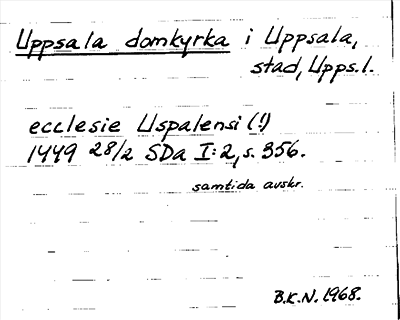 Uppsala domkyrka i Uppsala,
stad, Upps. l.
ecclesie Uspalensi (!)
1449 28/2 SDa I:2, s. 356.
samtida avskr.
B.K.N. 1968.